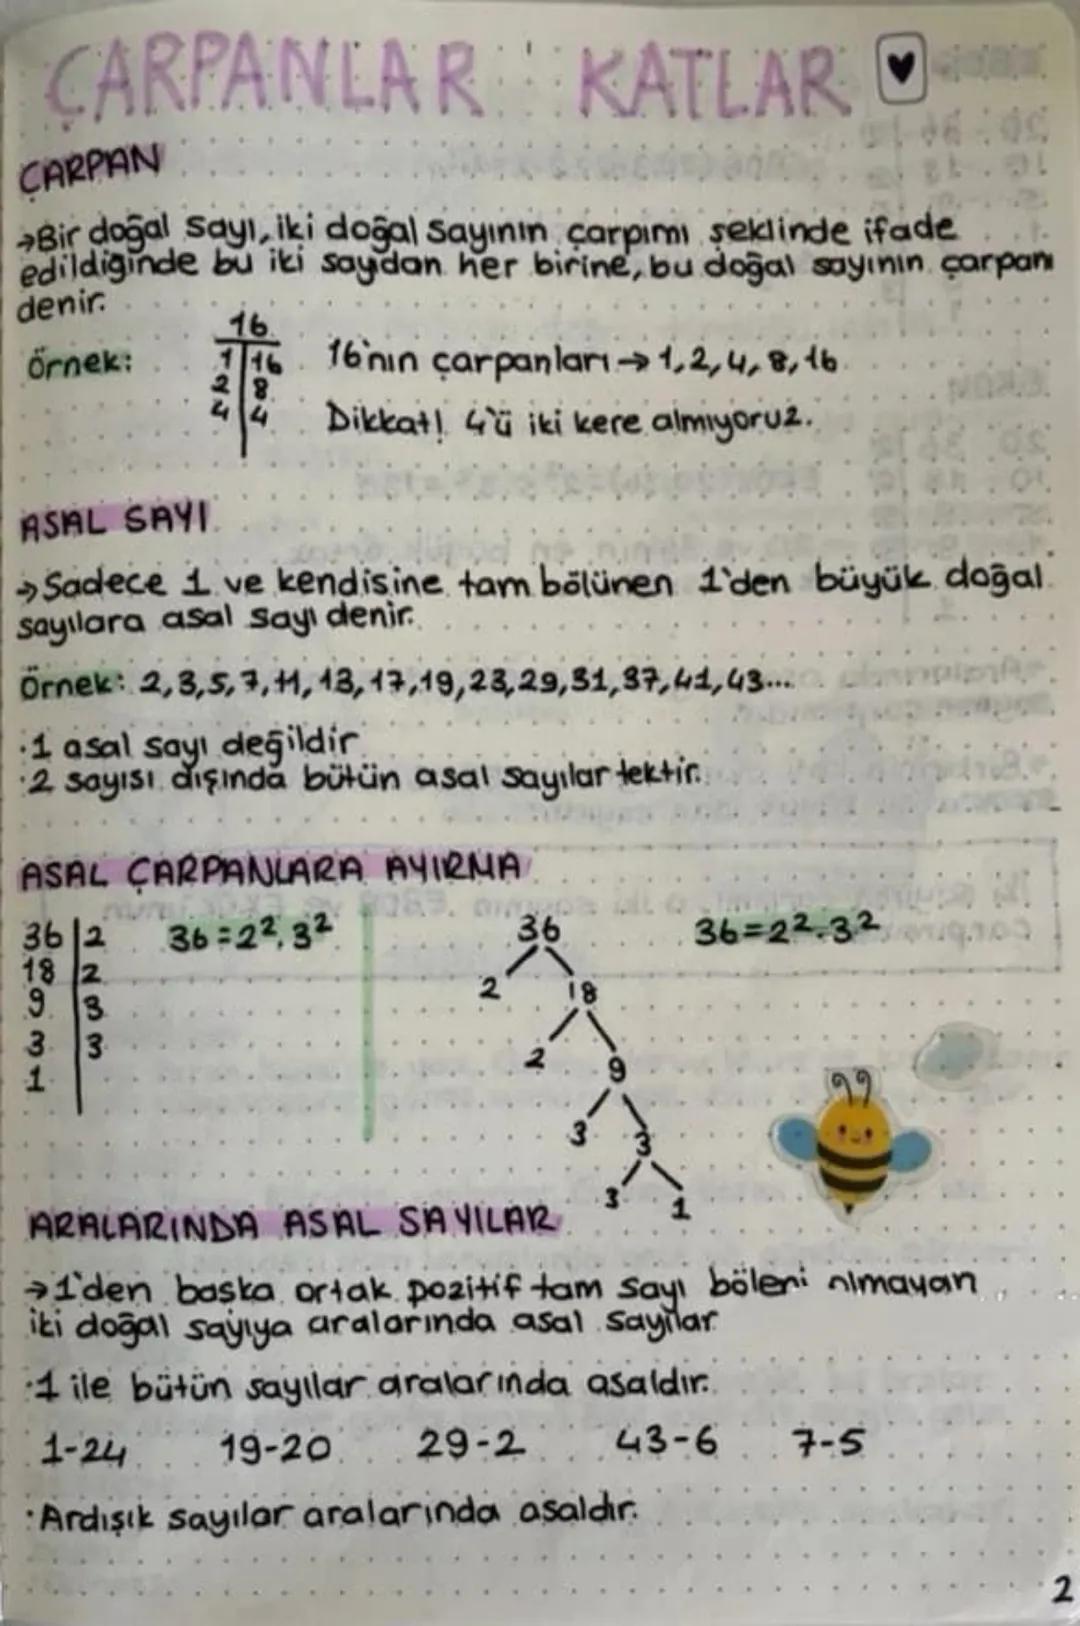 ÇARPANLAR KATLAR
ÇARPAN
→Bir doğal sayı, iki doğal sayının çarpımı şeklinde ifade
edildiğinde bu iki sayıdan her birine, bu doğal sayının çarpanı
denir.
Örnek:
16
1 | 16
2 | 8
4 | 4
16'nın çarpanları → 1, 2, 4, 8, 16
Dikkat! 4'ü iki kere almıyoruz.
ASAL SAYI
→Sadece 1 ve kendisine tam bölünen 1'den büyük doğal
sayılara asal sayı denir.
Örnek: 2,3,5,7,11,13,17,19,23,29,31,37,41,43...
·1 asal sayı değildir
·2 sayısı dışında bütün asal sayılar tektir.
ASAL ÇARPANLARA AYIRMA
36 | 2
18 | 2
9 | 3
3 | 3
1
36=2².3²
36
2 18
2 9
3 3
3 1
36=2².3²
ARALARINDA ASAL SAYILAR
→1'den başka ortak pozitif tam sayı böleni olmayan
iki doğal sayıya aralarında asal sayılar
·1 ile bütün sayılar aralarında asaldır.
1-24 19-20 29-2 43-6 7-5
·Ardışık sayılar aralarında asaldır.
2